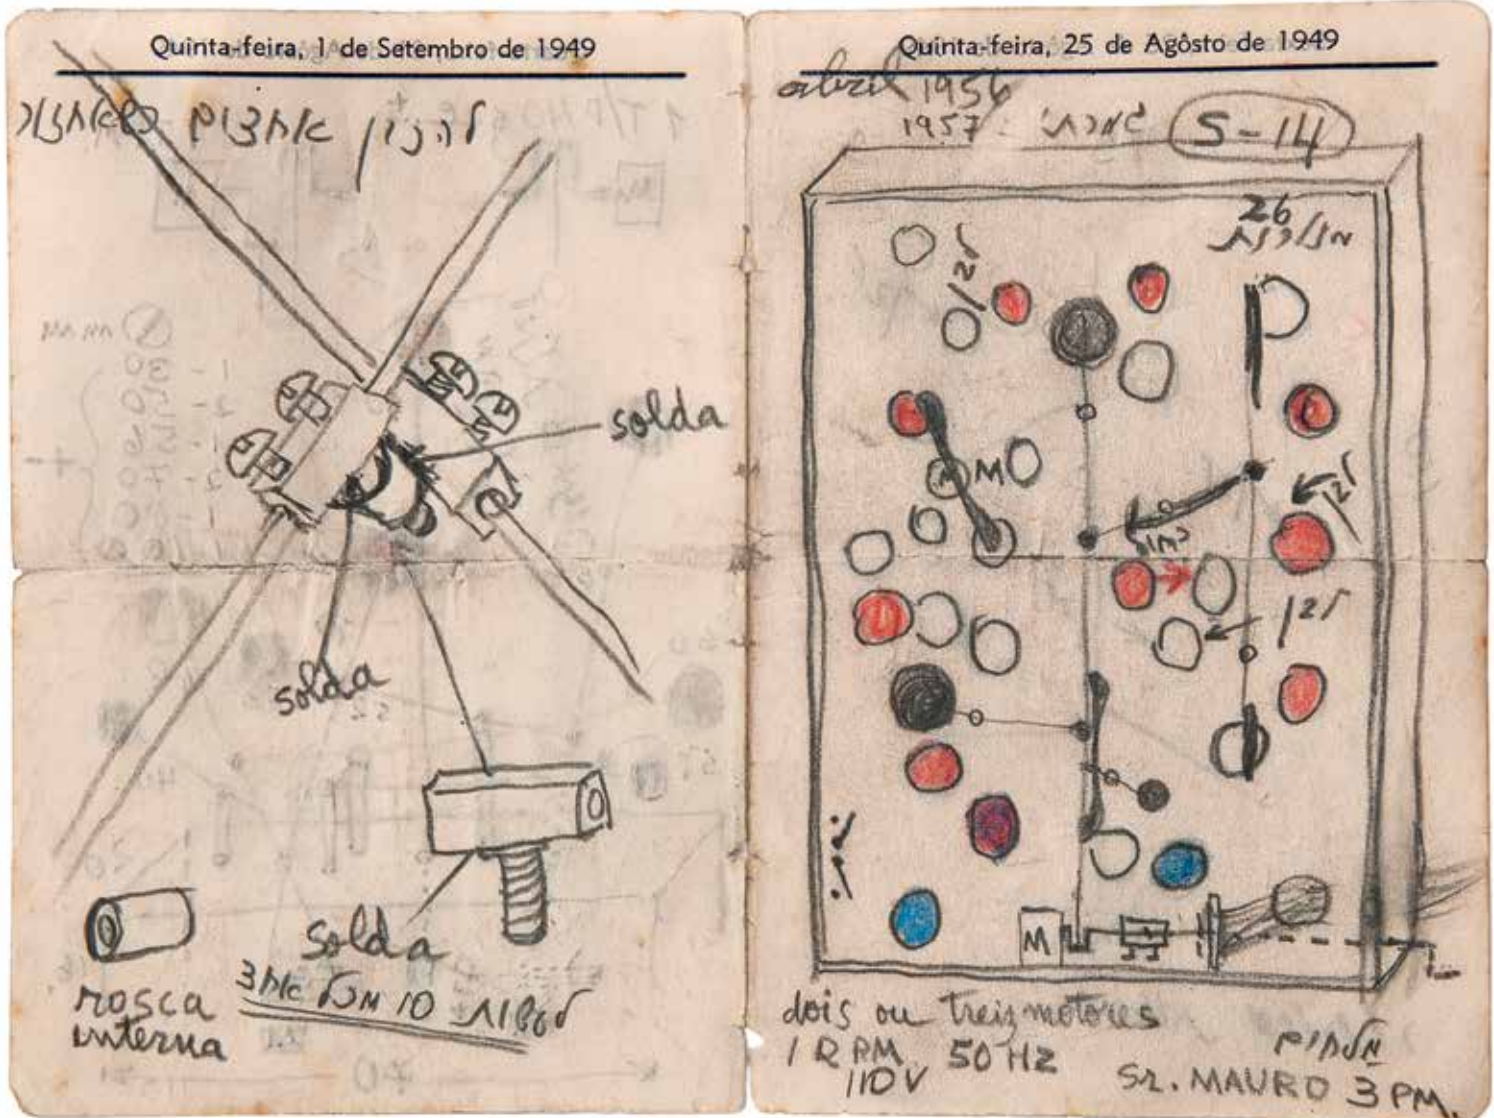 Quinta-feira, 1 de Setembro de 1949
להכין
solda
solda
solda
rosca
interna
10 מכל אחד
Quinta-feira, 25 de Agôsto de 1949
abril 1956
1957 גמרתי S-14
26
מנורות
לבן
M M
לבן
לבן
M
dois ou treis motores
1 RPM 50 HZ
110V
SR. MAURO 3 PM.